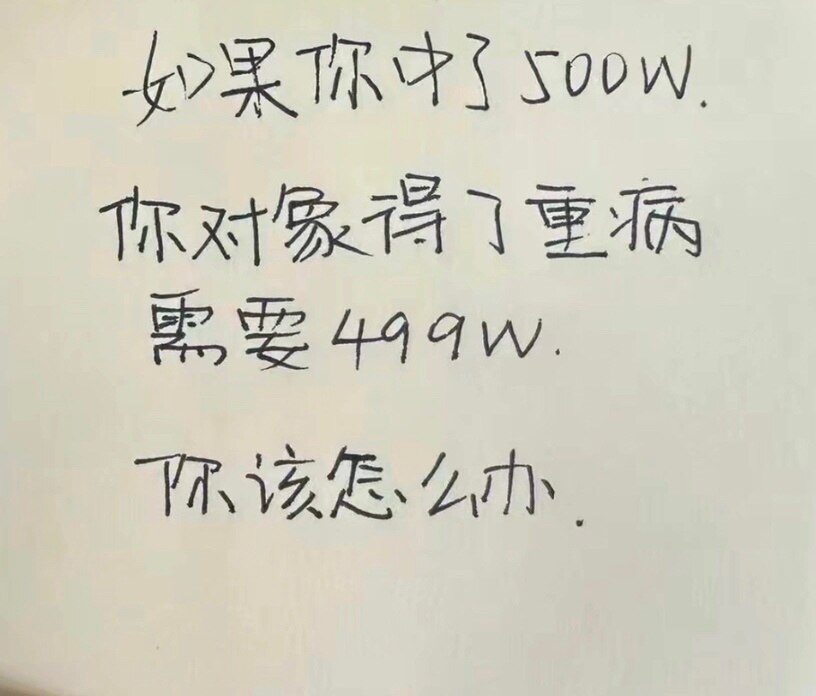 如果你中了500W.
你对象得了重病
需要499W.
你该怎么办.